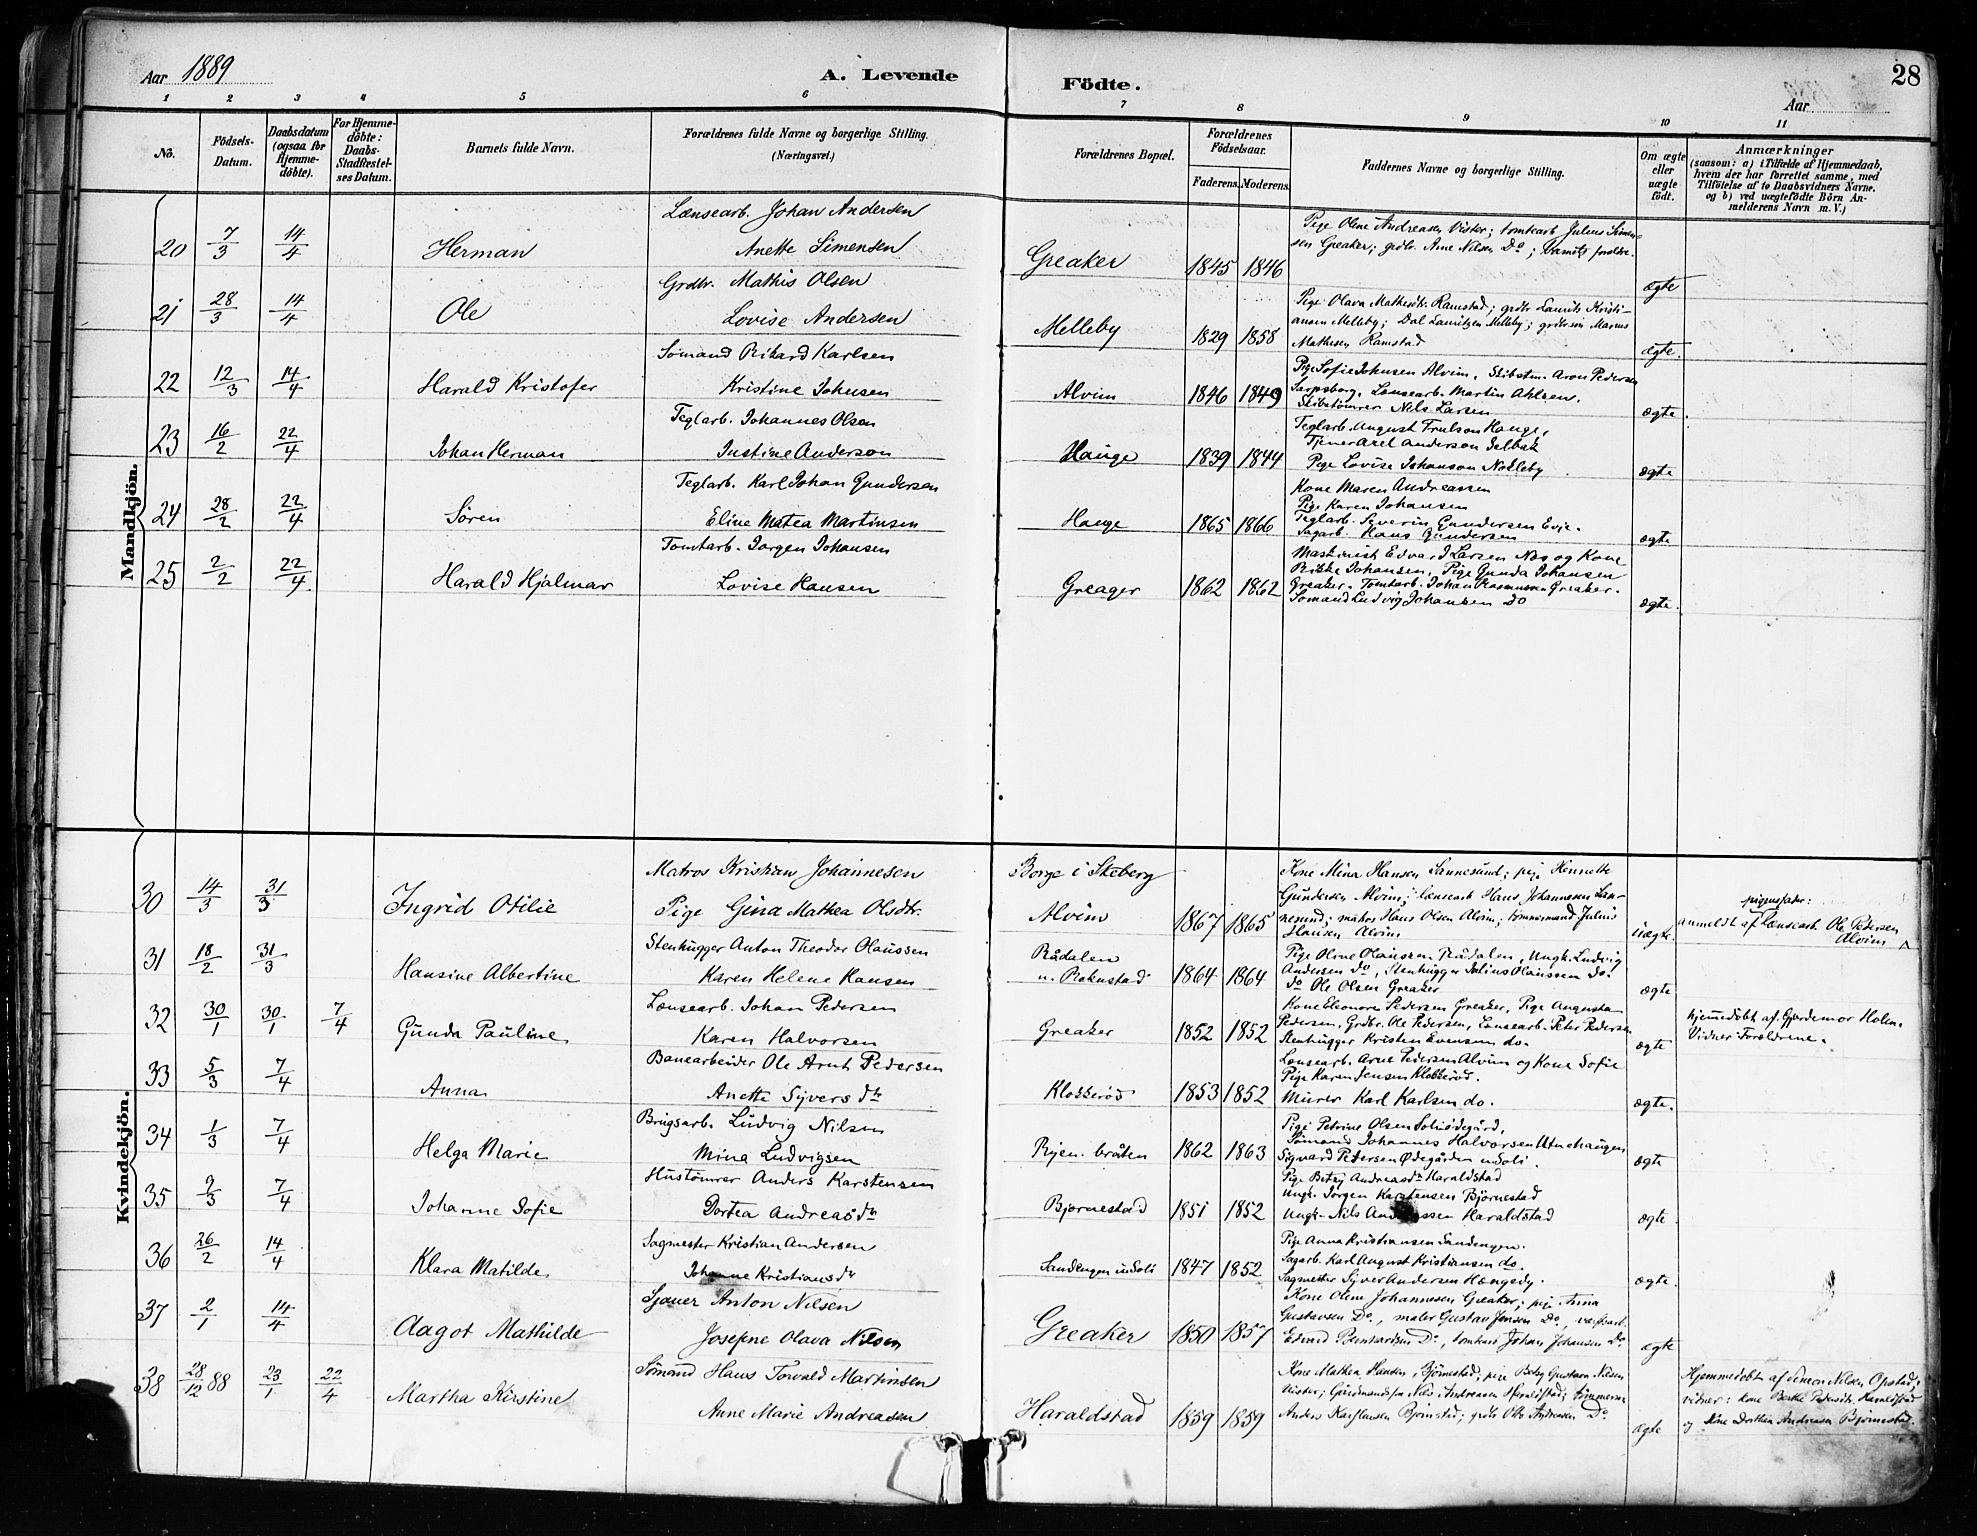 Aar 1889
A. Levende Födte.
Aar
28
1 2 3 4 5 6 7 8 9 10 11
No.
Födsels-Datum.
Daabsdatum (ogsaa for Hjemme-döbte).
For Hjemme-döbte: Daabs-Stadfæstel-ses Datum.
Barnets fulde Navn.
Forældrenes fulde Navne og borgerlige Stilling. (Næringsvei.)
Forældrenes Bopæl.
Forældrenes Födselsaar.
Faderens. Moderens.
Faddernes Navne og borgerlige Stilling.
Om ægte eller uægte födt.
Anmærkninger
(saasom: a) i Tilfælde af Hjemmedaab,
hvem der har forrettet samme, med
Tilföielse af to Daabsvidners Navne.
og b) ved uægtefödte Börn An-
melderens Navn m. V.)
Mandkjön.
Lænsearb. Johan Andersen
20 7/3 14/4 Herman Anette Simensen Greaker 1845 1846 ægte
Pige Olene Andreasen Vister; tomtearb Julius Simen-
sen Greaker; grdbr. Arne Nilsen Do; Barnets forældre.
Grdbr. Mathis Olsen
21 28/3 14/4 Ole Lovise Andersen Melleby 1829 1858 ægte.
Pige Olava Mathisdtr. Ramstad; grdbr Laurits Kristi-
ansen Melleby; Dal Lauritzen Melleby; grdbrsøn Marius
Mathisen Ramstad
Sømand Rikard Karlsen
22 12/3 14/4 Harald Kristofer Kristine Johnsen Alvim 1846 1849 ægte.
Pige Sofie Johnsen Alvim, Skibstm. Aron Pedersen
Sarpsborg, Lænsearb. Martin Ahlsen.
Skibstömrer Nils Larsen
Teglarb. Johannes Olsen
23 16/2 22/4 Johan Herman Justine Anderson Hauge 1839 1844 ægte
Teglarb. August Hauge,
Tjener Axel Anderson Selbak
Pige Lovise Johanson
Teglarb. Karl Johan Gundersen
24 28/2 22/4 Søren Eline Matea Martinsen Hauge 1865 1866 ægte
Kone Maren Andreassen
Pige Karen Johansen
Teglarb. Severin Gundersen Evje.
Sagarb. Hans Gundersen
Tomtarb. Jørgen Johansen
25 2/2 22/4 Harald Hjalmar Lovise Hansen Greager 1862 1862 ægte.
Maskinist Edvard Larsen Næs og Kone
Rikke Johansen, Pige Gunda Johansen
Greaker. Tomtarb. Johan Rasmussen Greaker.
Sømand Ludvig Johansen do
Kvindekjön.
Matros Kristian Johannesen Borge i Skeberg
30 14/3 31/3 Ingrid Otilie Pige Gina Mathea Olsdtr. Alvim 1867 1865 uægte.
Kone Mina Hansen Sannesund; pige Hennette
Gundersen Alvim; lænsearb Hans Johannesen San-
nesund; matros Hans Olsen Alvim; tømmermand Julius
Hansen Alvim
pigens fader:
anmeldt af Lænsearb. Ole Petersen
Alvim
Stenhugger Anton Theodor Olaussen
31 18/2 31/3 Hansine Albertine Karen Helene Hansen Rådalen
u. Rekustad 1864 1864 ægte
Pige Oline Olaussen Rådalen, Ungk. Ludvig
Andersen do, Stenhugger Julius Olaussen do.
do Ole Olsen Greaker
Lænsearb. Johan Pedersen
32 30/1 30/1 7/4 Gunda Pauline Karen Halvorsen Greaker 1852 1852 ægte
Kone Eleonora Pedersen Greaker, Pige Augusta
Pedersen, Grdbr. Ole Pedersen, Lænsearb. Peter Pedersen
Stenhugger Kristen Evensen do.
Hjemmedøbt af Gjordemor Holm.
Vidner Forældrene.
Banearbeider Ole Arnt Pedersen
33 5/3 7/4 Anna Anette Syversdtr Klokkerød 1853 1852 ægte.
Lænsearb. Arne Pedersen Alvim og Kone Sofie
Pige Karen Jensen Klokkerød.
Murer Karl Karlsen do.
Brugsarb. Ludvig Nilsen
34 1/3 7/4 Helga Marie Mina Ludvigsen Ryen. bråten 1862 1863 ægte
Pige Petrine Olsen
Sømand Johannes Halvorsen
Sigvard Petersen Ødegården u Soli.
Hustømrer Anders Karstensen
35 2/3 7/4 Johanne Sofie Dortea Andreasdtr Bjørnestad 1851 1852 ægte.
Pige Betzy Andreasdtr Haraldstad
Ungk. Jørgen Karstensen Bjørnestad
Ungk. Nils Andreassen Haraldstad
Sagmester Kristian Andersen
36 26/2 14/4 Klara Matilde Johanne Kristiansdtr Sandengen u Soli 1847 1852 ægte.
Pige Anna Kristiansen Sandengen.
Sagarb. Karl August Kristiansen do.
Sagmester Syver Andersen
Sjauer Anton Nilsen
37 2/1 14/4 Aagot Mathilde Josefine Olava Nilsen Greaker 1850 1857 ægte
Kone Olene Johannesen Greaker; pige Anna
Gustavsen Do., maler Gustav Jensen Do.,
Edvard Bernhardsen Do., tomtearb Johan Johansen Do.
Sømand Hans Torvald Martinsen
38 28/12 88 23/1 22/4 Martha Kirstine Anne Marie Andreasen Haraldstad 1859 1859 ægte
Kone Mathea Hansen, Bjørnestad; pige Betzy Gustava Nilsen
Vister; Gårdmandssøn Nils Andreasen Haraldstad; tømmerm
Anders Karstensen Bjørnstad; grdbr Otto Andreasen Do.
Hjemmedøbt af Simon Nilsen Opstad;
vidner: kone Berthe Haraldstad
og kone Dorthea Andreasen Bjørnestad.